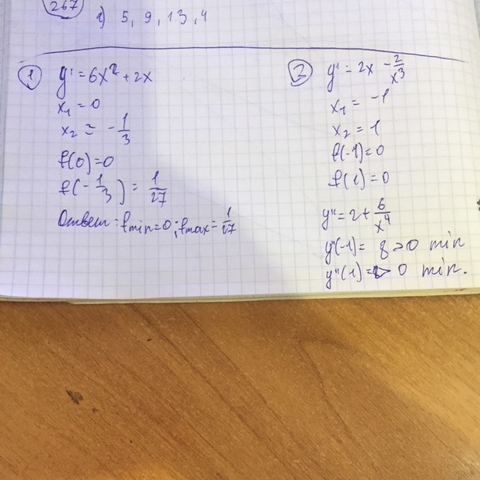 267
1) 5, 9, 13, 4
① y' = 6x² + 2x
x₁ = 0
x₂ = -1/3
f(0) = 0
f(-1/3) = 1/27
Ответ: fmin=0; fmax=1/27
② y' = 2x - 2/x³
x₁ = -1
x₂ = 1
f(-1) = 0
f(1) = 0
y'' = 2 + 6/x⁴
y''(-1) = 8 > 0 min
y''(1) = 8 > 0 min.